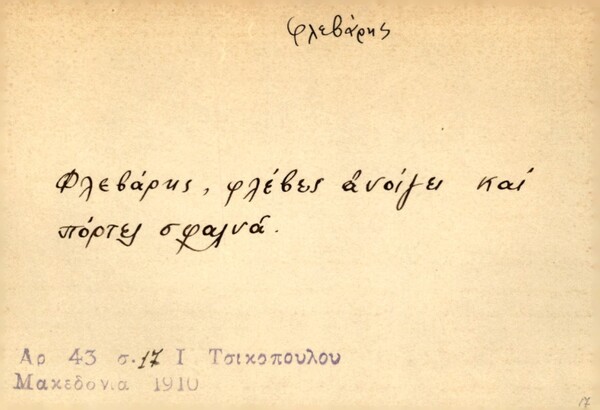 φλεβάρης
Φλεβάρης, φλέβες ἀνοίγει καί
πόρτες σφαλνά.
Αρ 43 σ. 17 Ι Τσικοπουλου
Μακεδονια 1910
17